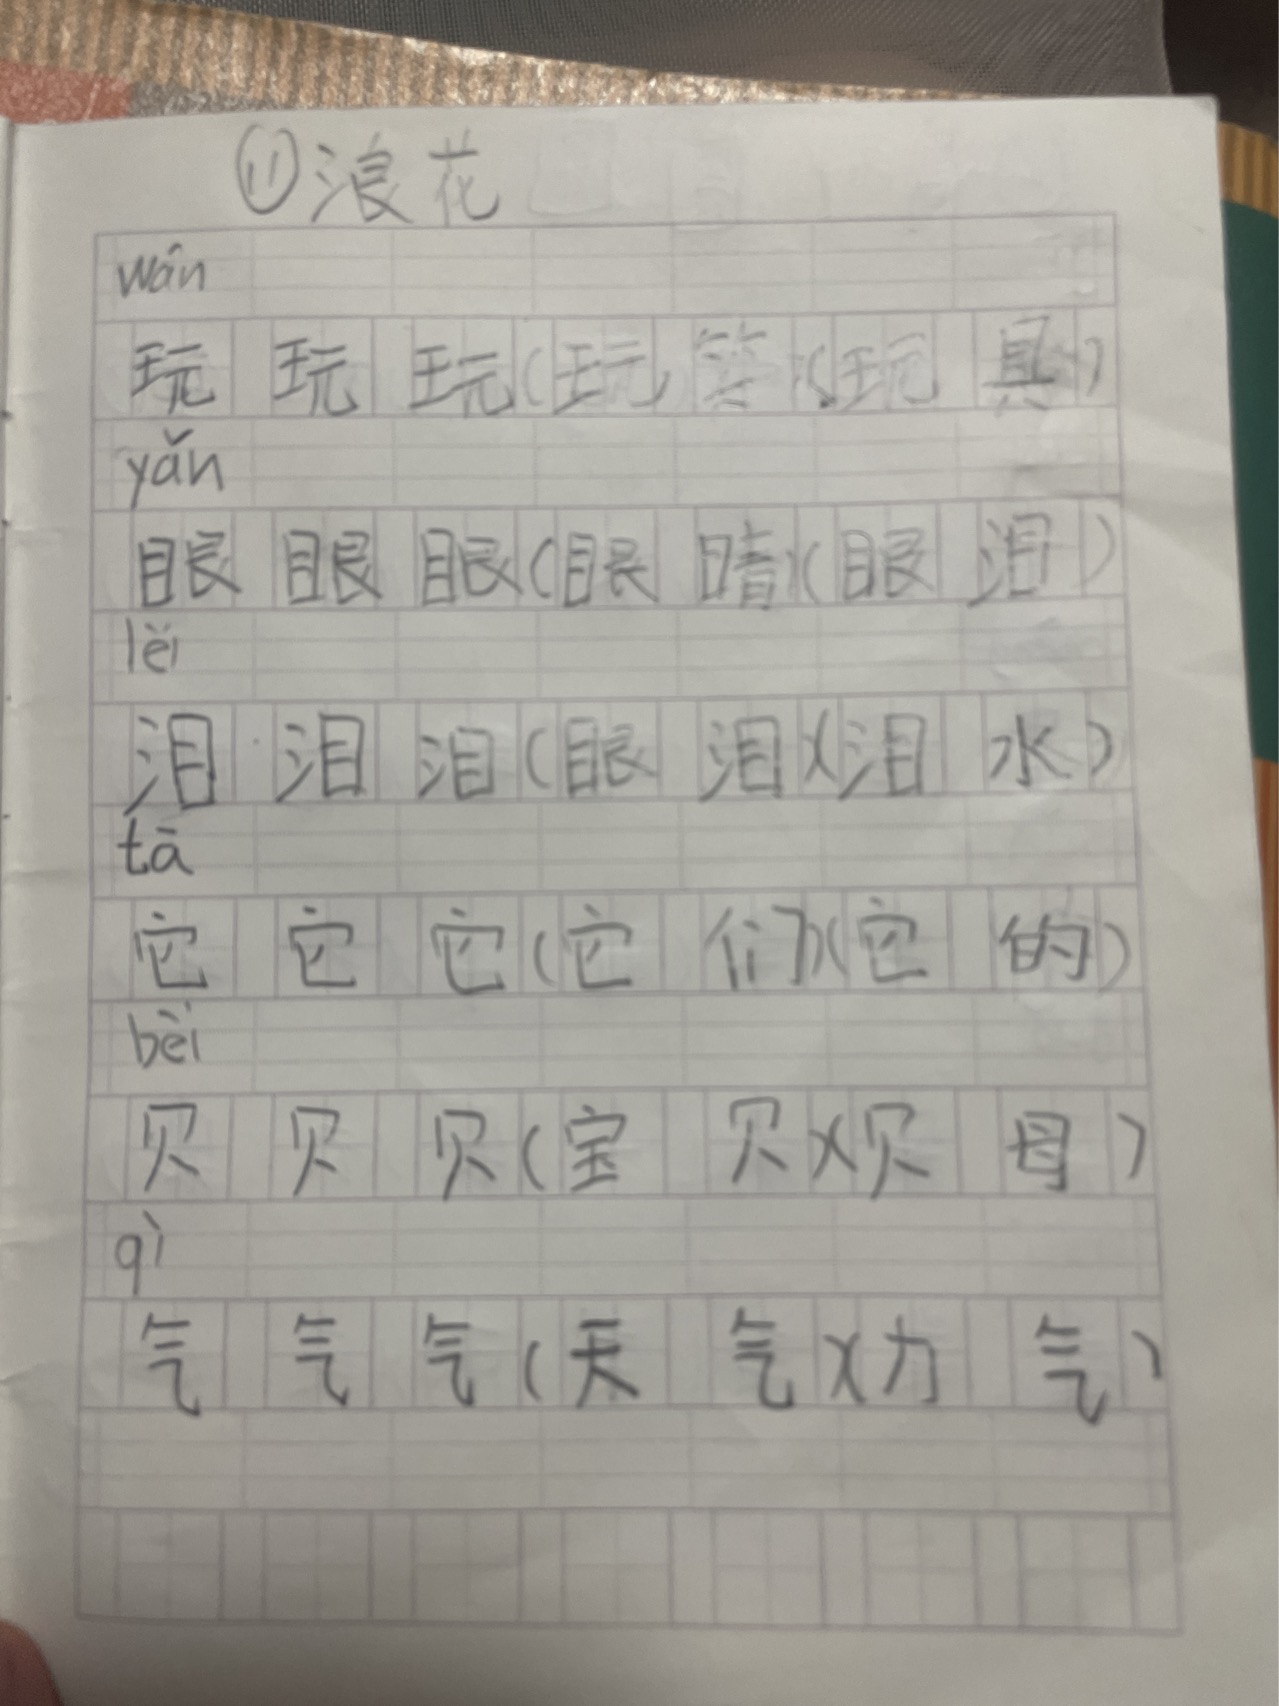 ⑪浪花
wán
玩 玩 玩(玩 笑)(玩 具)
yǎn
眼 眼 眼(眼 睛)(眼 泪)
lèi
泪 泪 泪(眼 泪)(泪 水)
tā
它 它 它(它 们)(它 的)
bèi
贝 贝 贝(宝 贝)(贝 母)
qì
气 气 气(天 气)(力 气)